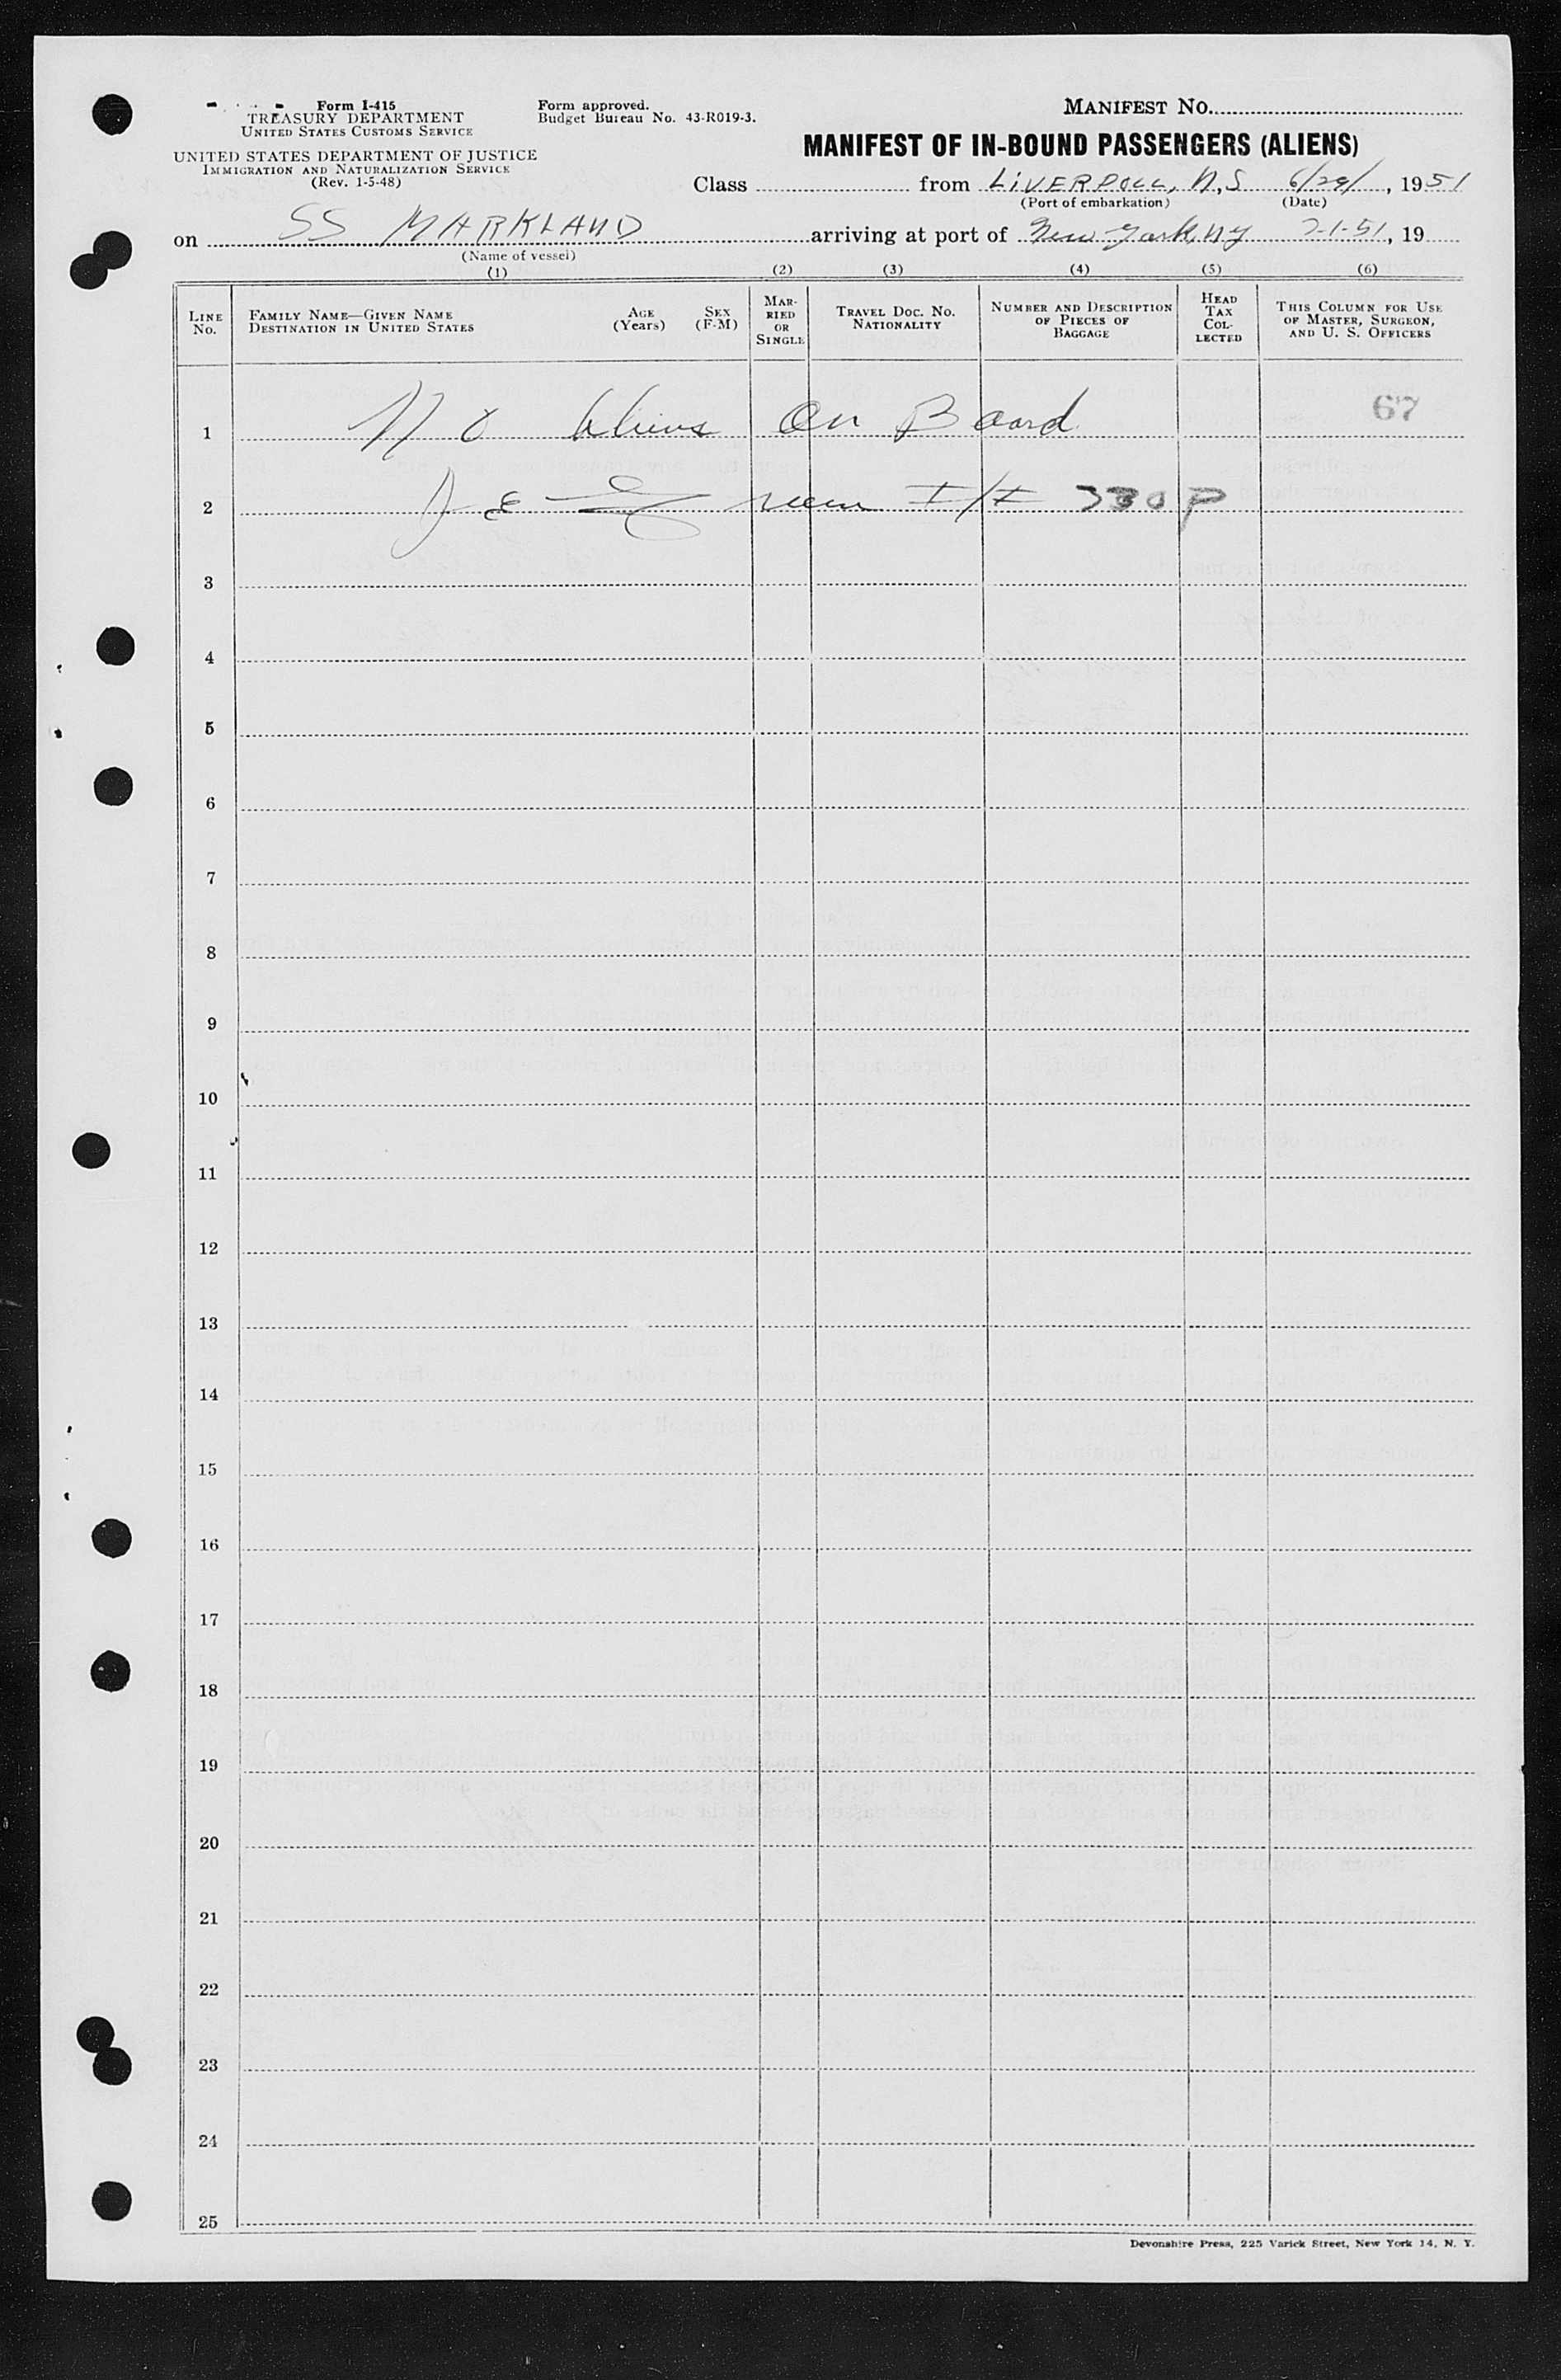 Form I-415
TREASURY DEPARTMENT
UNITED STATES CUSTOMS SERVICE
UNITED STATES DEPARTMENT OF JUSTICE
IMMIGRATION AND NATURALIZATION SERVICE
(Rev. 1-5-48)
Form approved.
Budget Bureau No. 43-R019-3.
MANIFEST NO.
MANIFEST OF IN-BOUND PASSENGERS (ALIENS)
Class from LIVERPOLL, N,S 6/29/, 1951
(Port of embarkation) (Date)
on SS MARKLAND arriving at port of New York, NY 7-1-51, 19
(Name of vessel)
(1) (2) (3) (4) (5) (6)
LINE No.
FAMILY NAME—GIVEN NAME
DESTINATION IN UNITED STATES
AGE (Years)
SEX (F-M)
MARRIED OR SINGLE
TRAVEL DOC. NO.
NATIONALITY
NUMBER AND DESCRIPTION OF PIECES OF BAGGAGE
HEAD TAX COLLECTED
THIS COLUMN FOR USE OF MASTER, SURGEON, AND U. S. OFFICERS
1 No Aliens On Board 67
2 J E Green I/I 330P
3
4
5
6
7
8
9
10
11
12
13
14
15
16
17
18
19
20
21
22
23
24
25
Devonshire Press, 225 Varick Street, New York 14, N. Y.